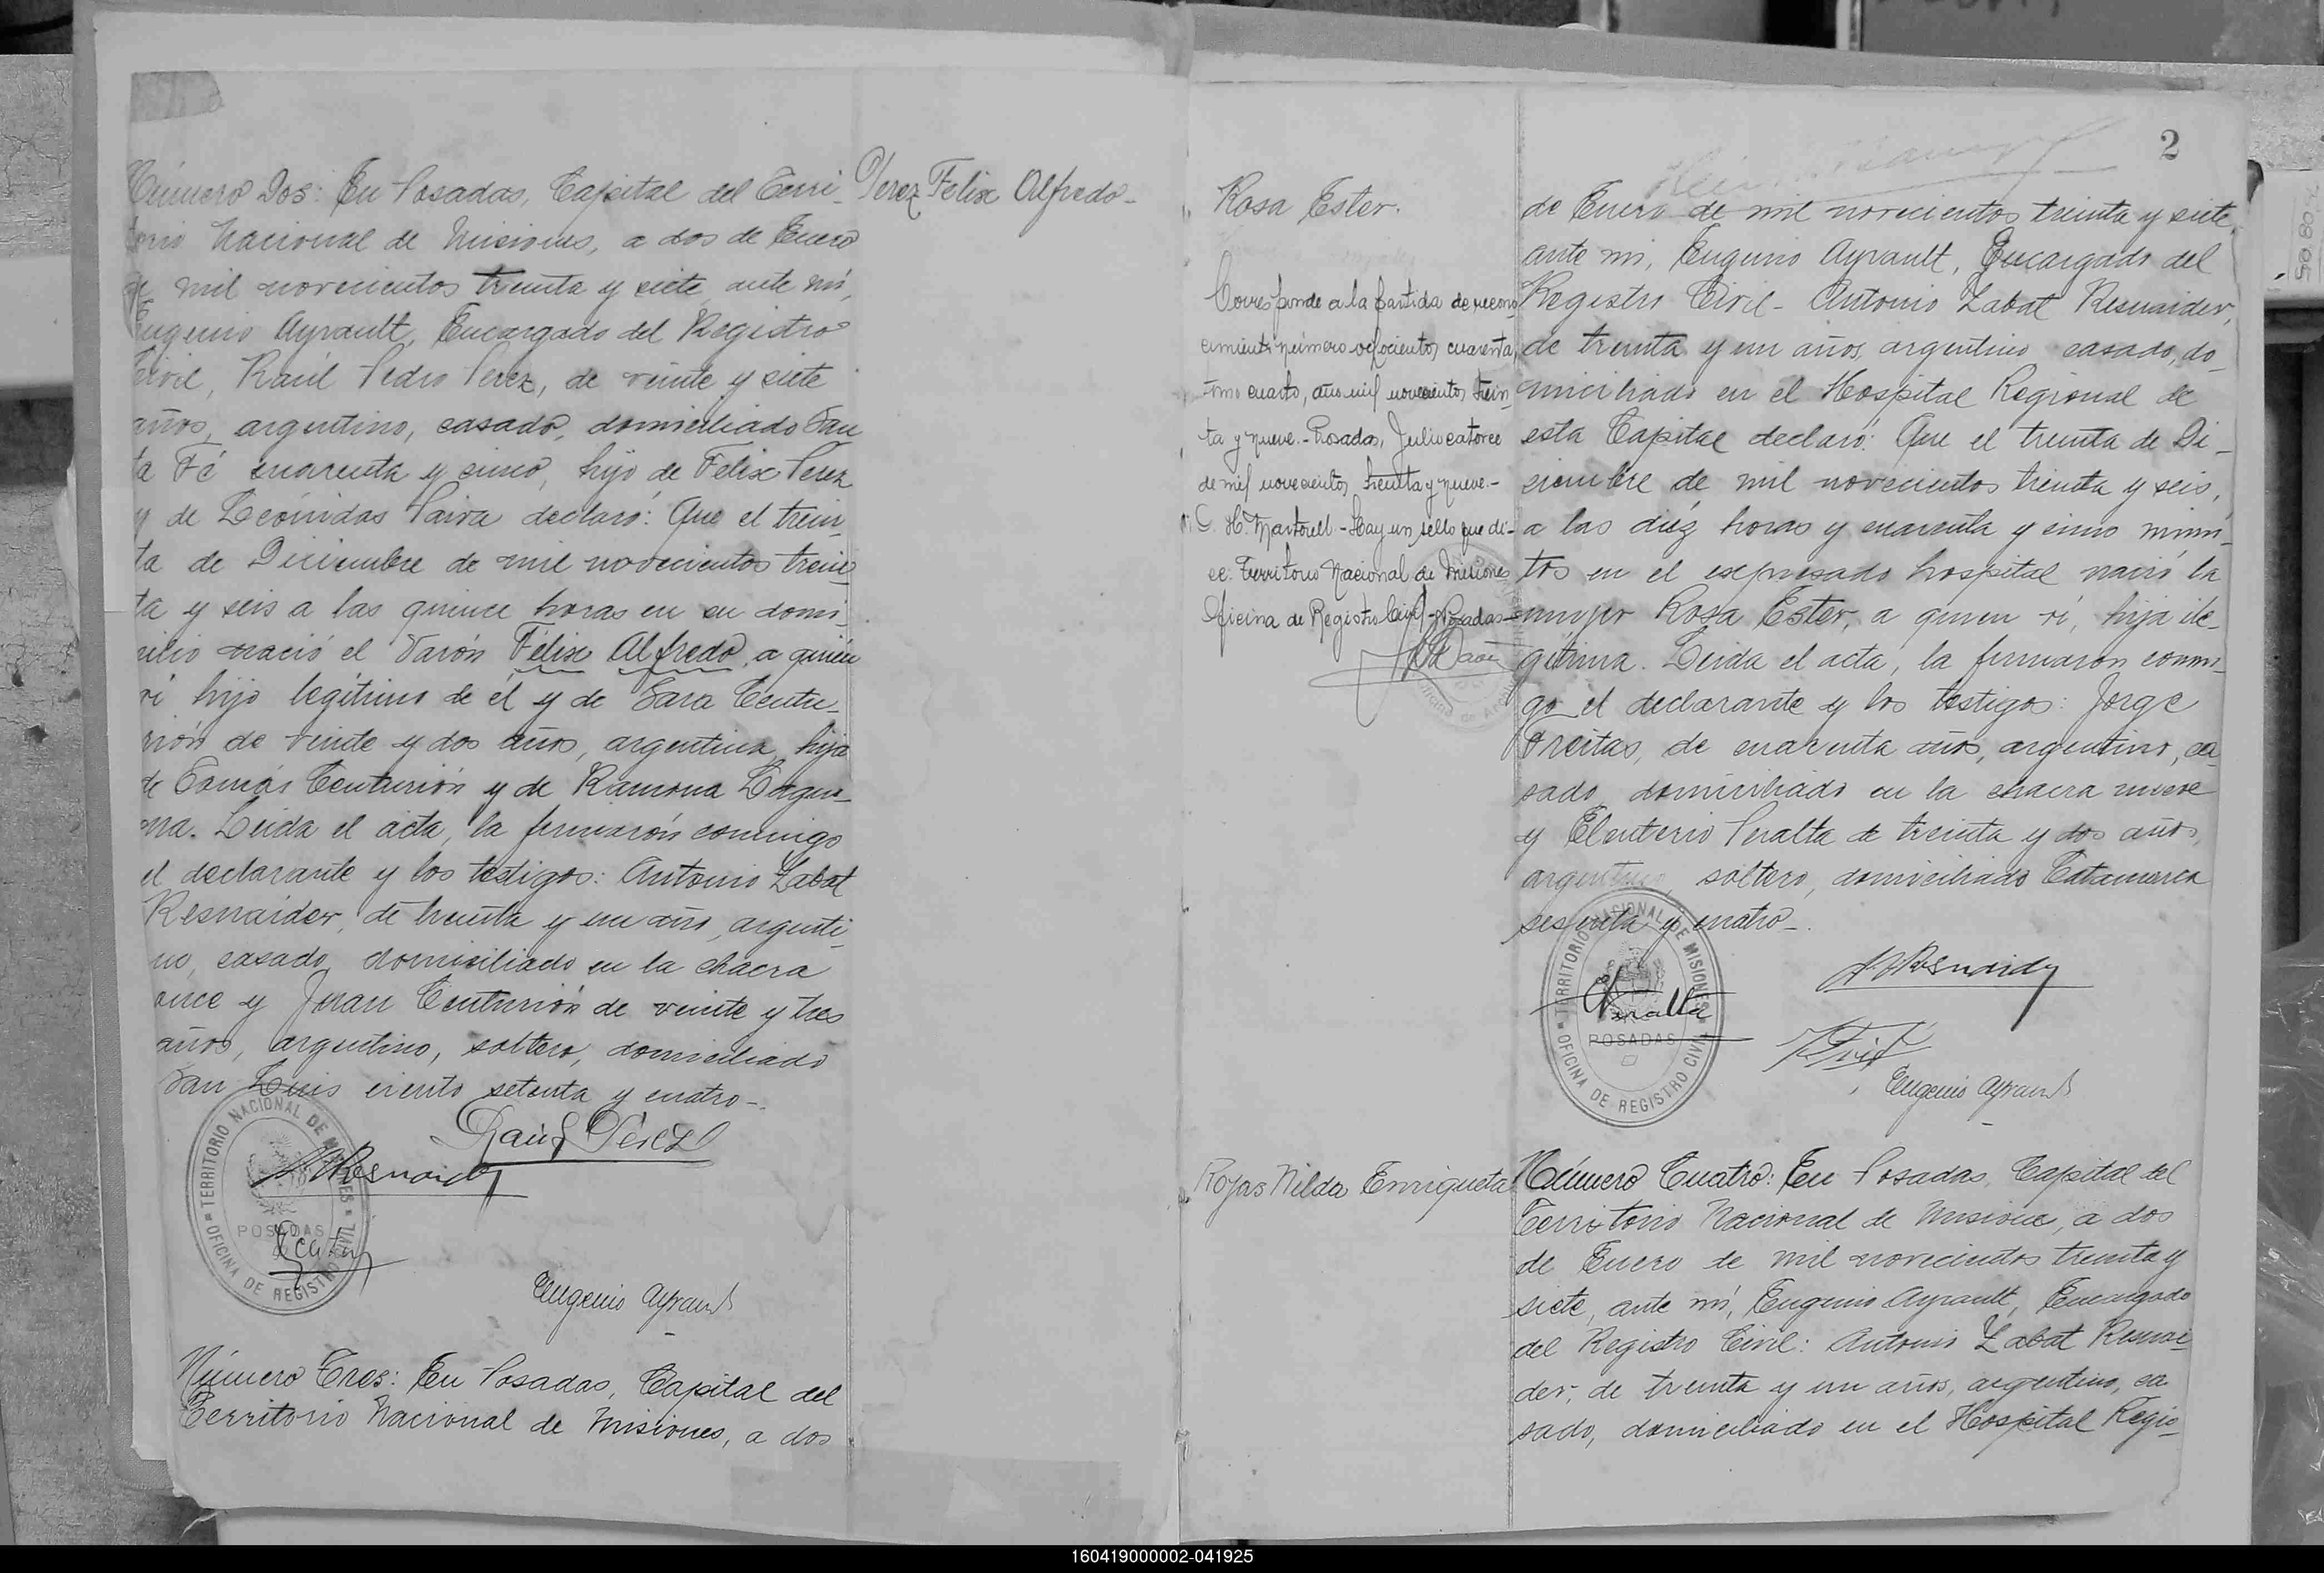 Número Dos: En Posadas, Capital del Terri-
torio Nacional de Misiones, a dos de Enero
de mil novecientos treinta y siete, ante mí,
Eugenio Ayrault, Encargado del Registro
Civil, Raúl Pedro Perez, de veinte y siete
años, argentino, casado, domiciliado San
ta Fé cuarenta y cinco, hijo de Felix Perez
y de Leónidas Paiva declaró: Que el trein-
ta de Diciembre de mil novecientos trein
ta y seis a las quince horas en su domi-
cilio nació el Varón Félix Alfredo, a quién
ví hijo legítimo de él y de Sara Centu-
rión de veinte y dos años, argentina, hija
de Tomás Centurión y de Ramona
Leida el acta, la firmarón conmigo
el declarante y los testigos: Antonio Labat
Resnaider, de treinta y un año, argenti-
no, casado, domiciliado en la chacra
once y Juan Centurión de veinte y tres
años, argentino, soltero, domiciliado
San Luis ciento setenta y cuatro-.
Raúl P Perez
A. L. Resnaider
TERRITORIO NACIONAL DE MISIONES
POSADAS
OFICINA DE REGISTRO CIVIL
Eugenio Ayrault
Número Tres: En Posadas, Capital del
Territorio Nacional de Misiones, a dos
Perez Felix Alfredo-
2
Rosa Ester.
Corresponde a la partida de recono
cimiento número ochocientos cuarenta
cuarto, año mil novecientos trein-
ta y nueve.- Posadas, Julio catorce
de mil novecientos treinta y nueve.-
C. H. Martorell - Hay un sello que di-
ce: Territorio Nacional de Misiones
Oficina de Registro Civil - Posadas-
de Enero de mil novecientos treinta y siete,
ante mi, Eugenio Ayrault, Encargado del
Registro Civil- Antonio Labat Resnaider,
de treinta y un años, argentino casado, do-
miciliado en el Hospital Regional de
esta Capital declaró: Que el treinta de Di-
ciembre de mil novecientos treinta y seis,
a las diéz horas y cuarenta y cinco minu-
tos en el expresado hospital nació la
mujer Rosa Ester, a quien ví, hija ile-
gítima. Leida el acta, la firmaron conmi-
go el declarante y los testigos: Jorge
Freitas, de cuarenta años, argentino, ca
sado, domiciliado en la chacra nueve
y Eleuterio Peralta de treinta y dos años,
argentino, soltero, domiciliado Catamarca
sesenta y cuatro-.
A. L. Resnaider
TERRITORIO NACIONAL DE MISIONES
Peralta
POSADAS
OFICINA DE REGISTRO CIVIL
Eugenio Ayrault
Rojas Nilda Enriqueta
Número Cuatro: En Posadas, Capital del
Territorio Nacional de Misiones, a dos
de Enero de mil novecientos treinta y
siete, ante mí, Eugenio Ayrault, Encargado
del Registro Civil: Antonio Labat Resnai-
der, de treinta y un años, argentino, ca
sado, domiciliado en el Hospital Regio-
160419000002-041925